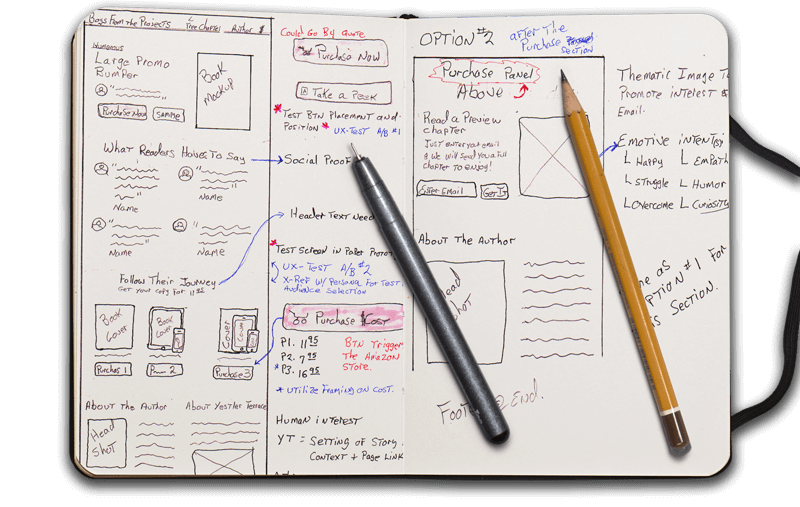 Boys From the Projects
Free Chapter
Author
$
Humorous
Large Promo
Bumper
Book
Mockup
Purchase Now
Sample
What Readers Have To Say
Name
Name
Name
Name
Follow Their Journey
Get your copy for 11.95
Book
Cover
Book
Cover
Cover
Cover
Purchas 1
2
Purchase 3
About the Author
About Yesler Terrace
Head
Shot
Could Go By Quote
Purchase Now
Take a Peek
*Test BTN Placement and
Position * UX-Test A/B #1
Social Proof
Header Text Need
*Test Screen in Paper Proto
UX-Test A/B #2
X-Ref w/ Persona for Test
Audience Selection
Purchase $Cost
P1. 11.95
P2. 7.95
*P3. 16.95
BTN Trigger
The Amazon
Store.
*Utilize Framing on Cost.
Human interest
YT = Setting of Story
Context + Page Link
OPTION #2
After The
Purchase
Section
Purchase Panel
Above
Read a Preview
chapter
Just enter your email
& we will send you a full
chapter to enjoy!
Enter Email
Get It
About The Author
Head
Shot
Footer @ End.
Thematic Image T
Promote interest &
Email.
Emotive intentes
L Happy
L Empath
L Struggle
L Humor
L Overcome
L Curiosity
me as
OPTION #1 For
is Section.